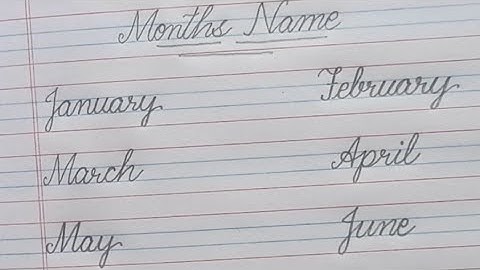 Months Name
January February
March April
May June